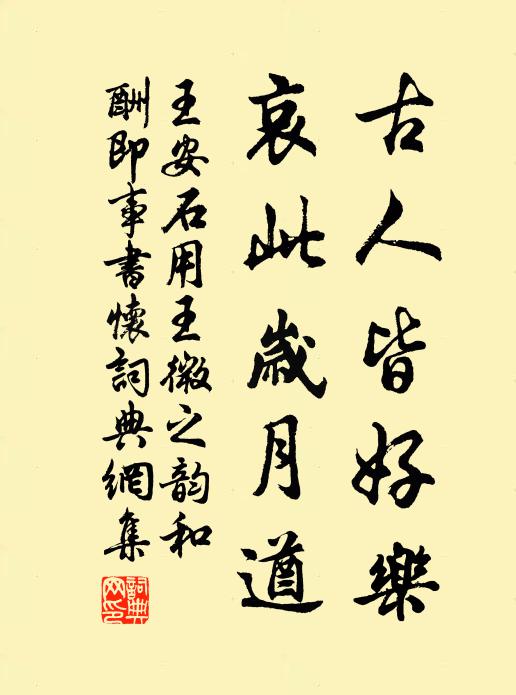 古人皆好樂
哀此歲月遒
王安石用王微之韵和
酬即事書懷詞典網集
詞典網印